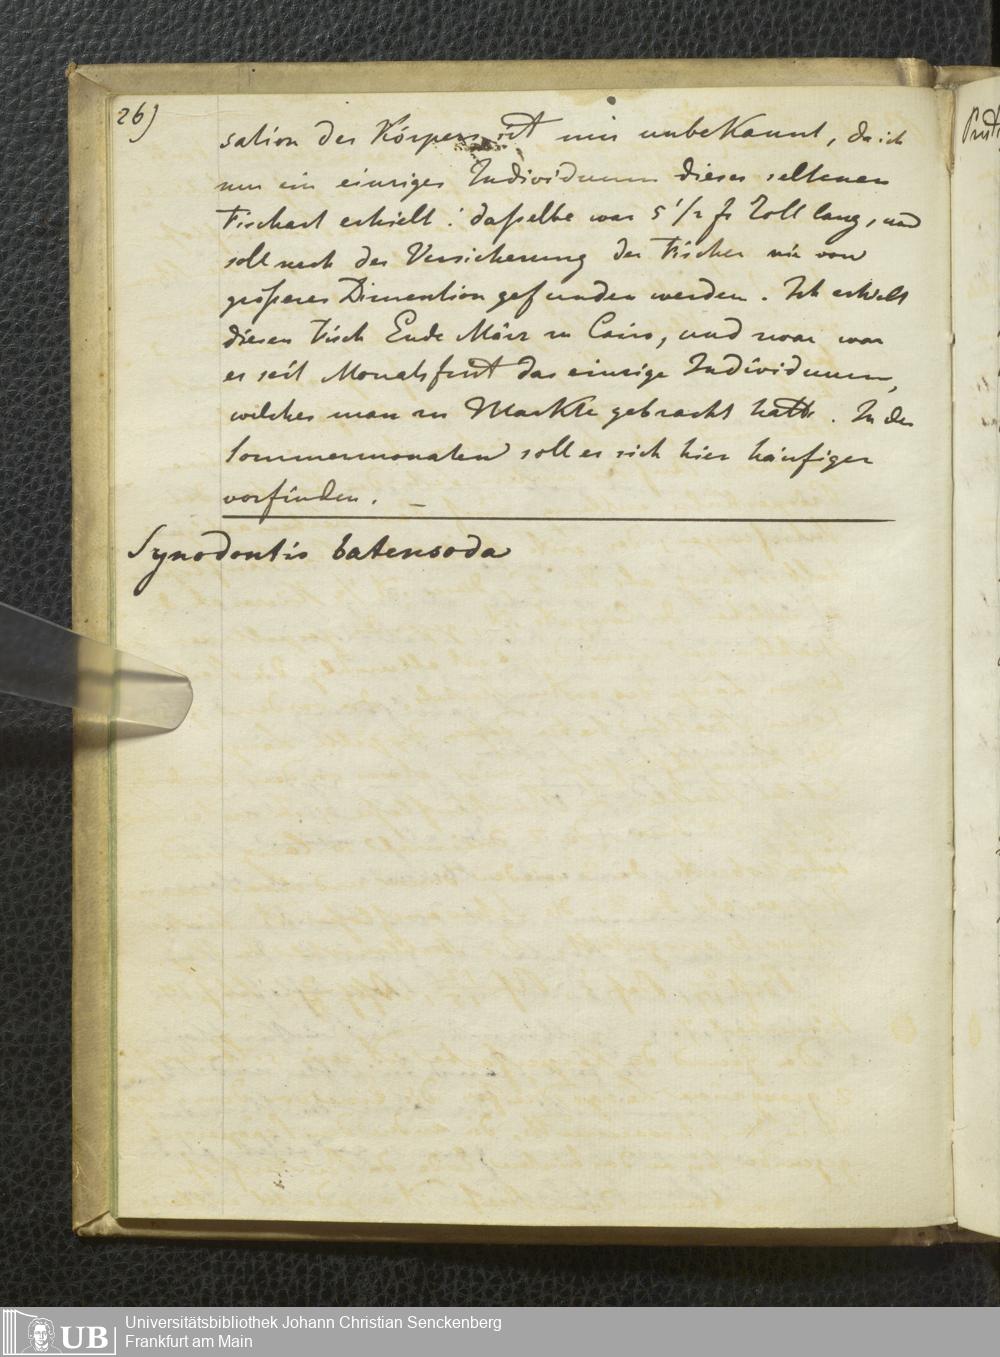 26)
sation des Körpers ist mir unbekannt, da ich
nur ein einziges Individuum dieser seltenen
Fischart erhielt: dasselbe war 5 1/2 fr Zoll lang, und
soll nach der Versicherung der Fischer nie von
größerer Dimention gefunden werden. Ich erhielt
diesen Fisch Ende März in Cairo, und zwar war
er seit Monatsfrist das einzige Individuum,
welches man zu Markte gebracht hatte. In den
Sommermonaten soll er sich hier häufiger
vorfinden. –
Synodontis batensoda
UB
Universitätsbibliothek Johann Christian Senckenberg
Frankfurt am Main